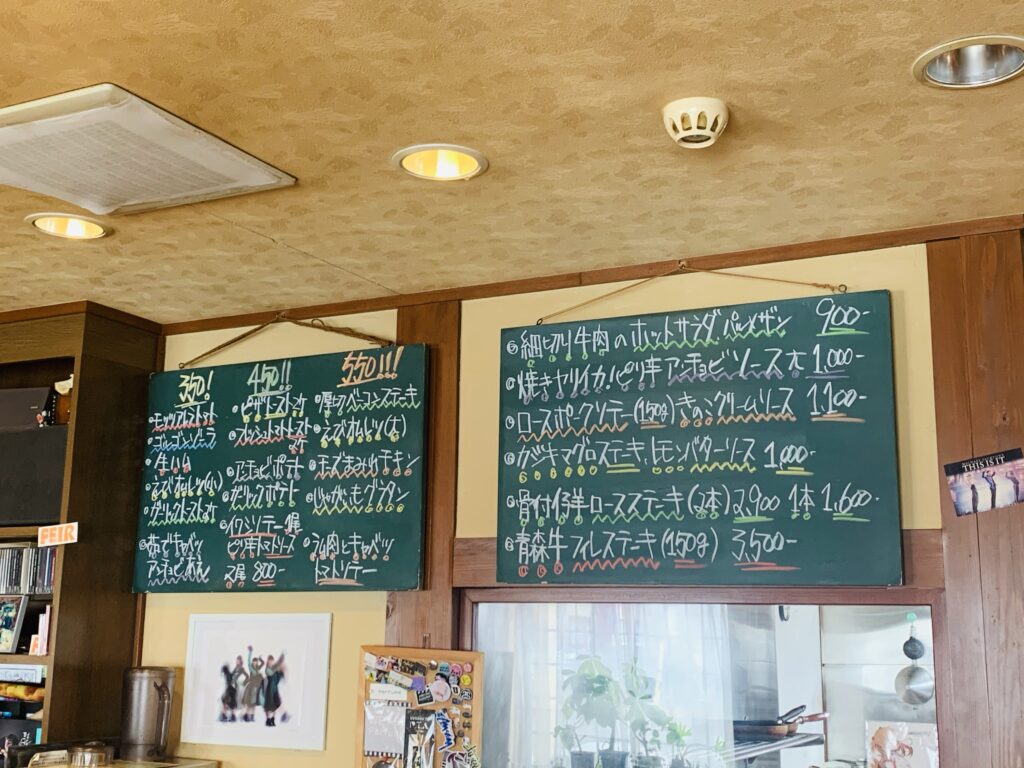 350!
モッツァレラトマト
ゴルゴンゾーラ
牛すじ
えびオムレツ(小)
ガーリックトースト
ゆでキャベツ
アンチョビあえ
450!!
ピザトースト
アンチョビポテト
ガーリックポテト
イワシソテー
ピリ辛トマトソース
2尾 800-
550!!!
厚切ベーコンステーキ
えびオムレツ(大)
チーズまみれチキン
じゃがいもグラタン
ラム肉とキャベツ
トマトソテー
細切り牛肉のホットサラダ パルメザン 900-
焼きヤリイカ ピリ辛アンチョビソース 1,000-
ロースポークソテー(150g)きのこクリームソース 1,100-
カジキマグロステーキ レモンバターソース 1,000-
骨付仔羊ロースステーキ(2本)2,900 1本 1,600-
青森牛フィレステーキ(150g) 3,500-
FEIR
THIS IS IT